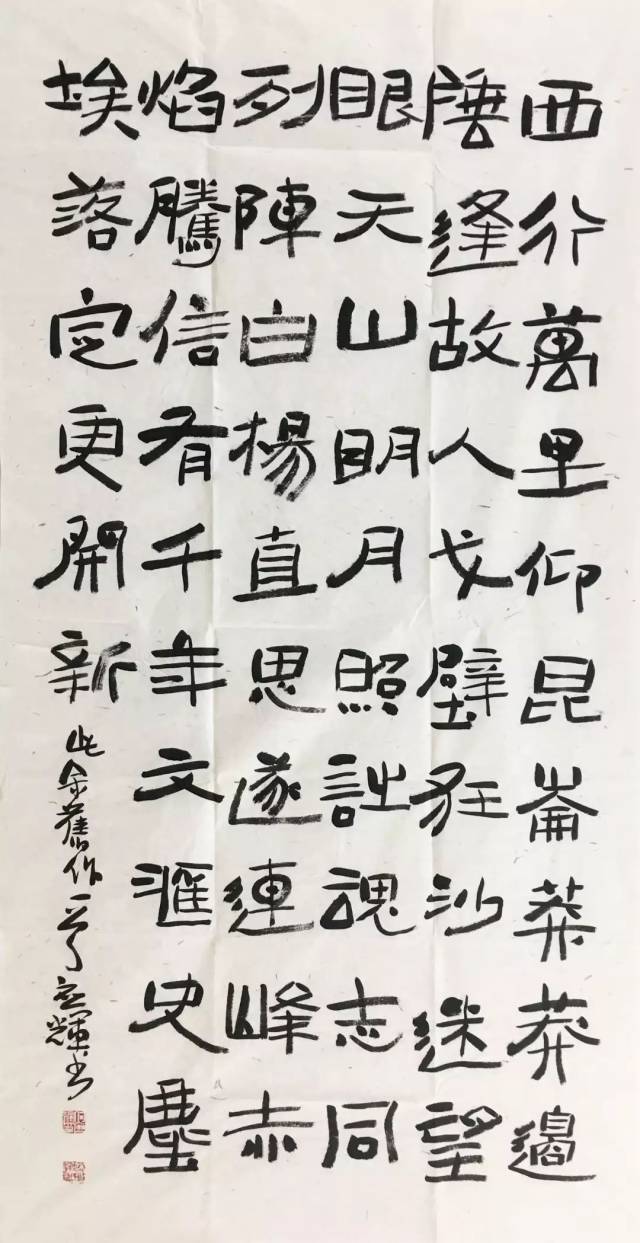 西行萬里仰昆崙莽莽邊
陲逢故人戈壁狂沙迷望
眼天山明月照詩魂志同
列陣白楊直思遂連峰赤
焰騰信有千年文滙史塵
埃落定更開新
此余舊作 輝书